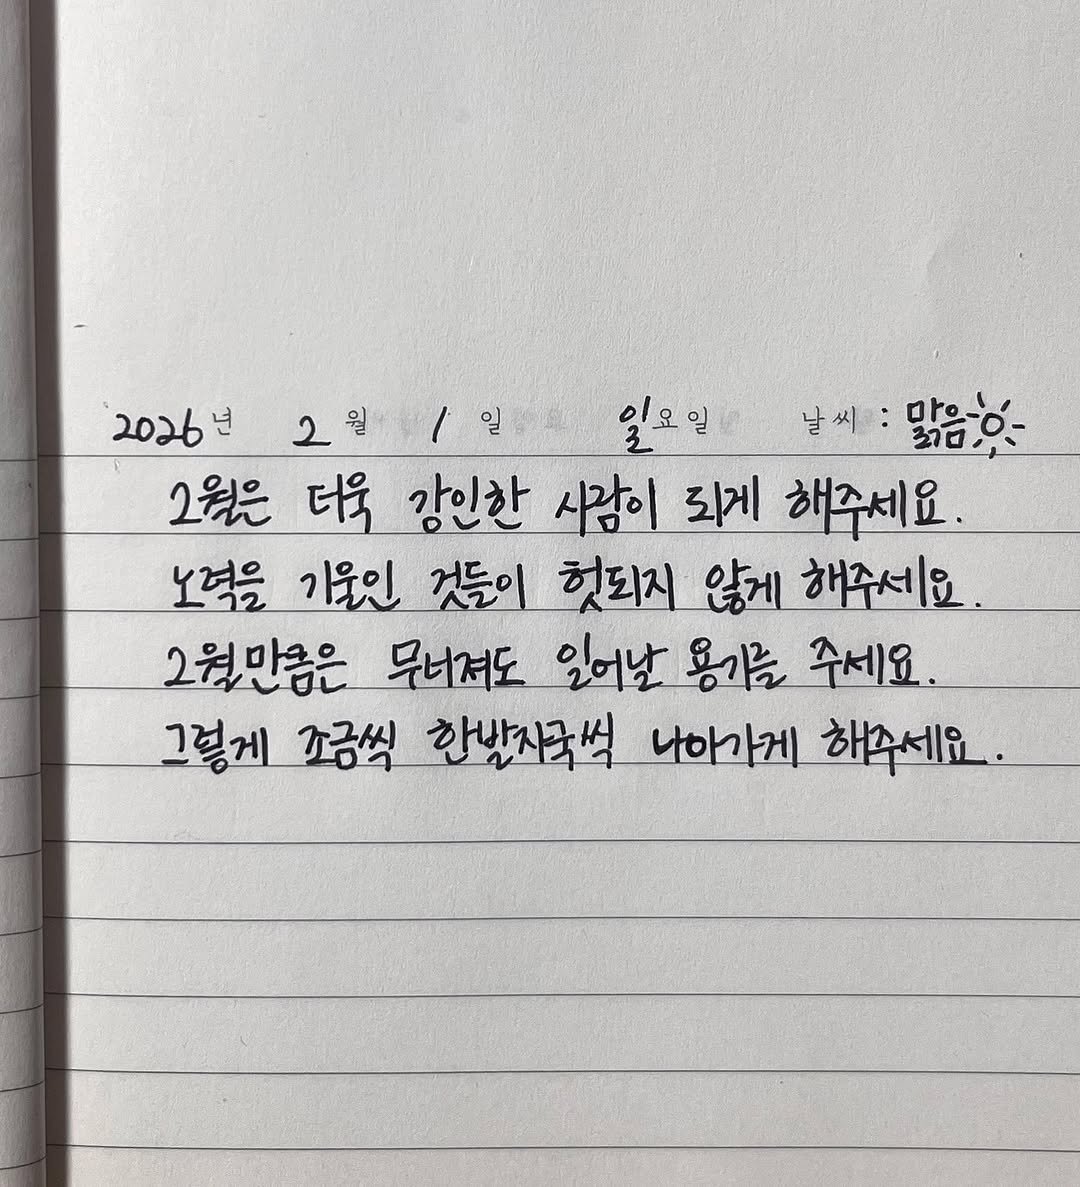 2026년 2월 1일 일요일 날씨 : 맑음
2월은 더욱 강인한 사람이 되게 해주세요.
노력을 기울인 것들이 헛되지 않게 해주세요.
2월만큼은 무너져도 일어날 용기를 주세요.
그렇게 조금씩 한발자국씩 나아가게 해주세요.